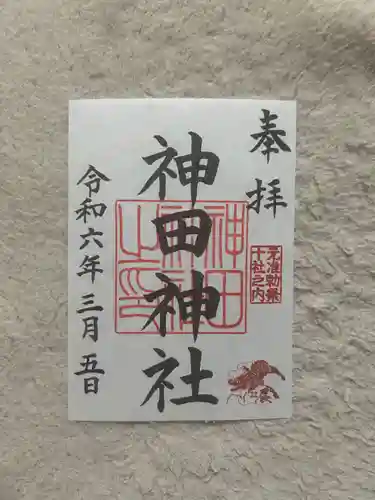 奉拝
元准勅祭
十社之内
神田神社
神田神社之印
令和六年三月五日